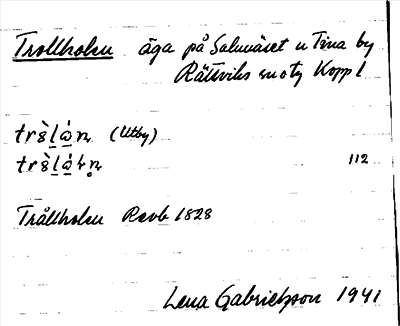 Trollholen äga på Salunäset u Tina by
Rättviks sn o tg Koppl
trɛ̀lán (Utby)
trɛ̀láhn̥ 112
Trållholen Revb 1828
Lena Gabrielsson 1941